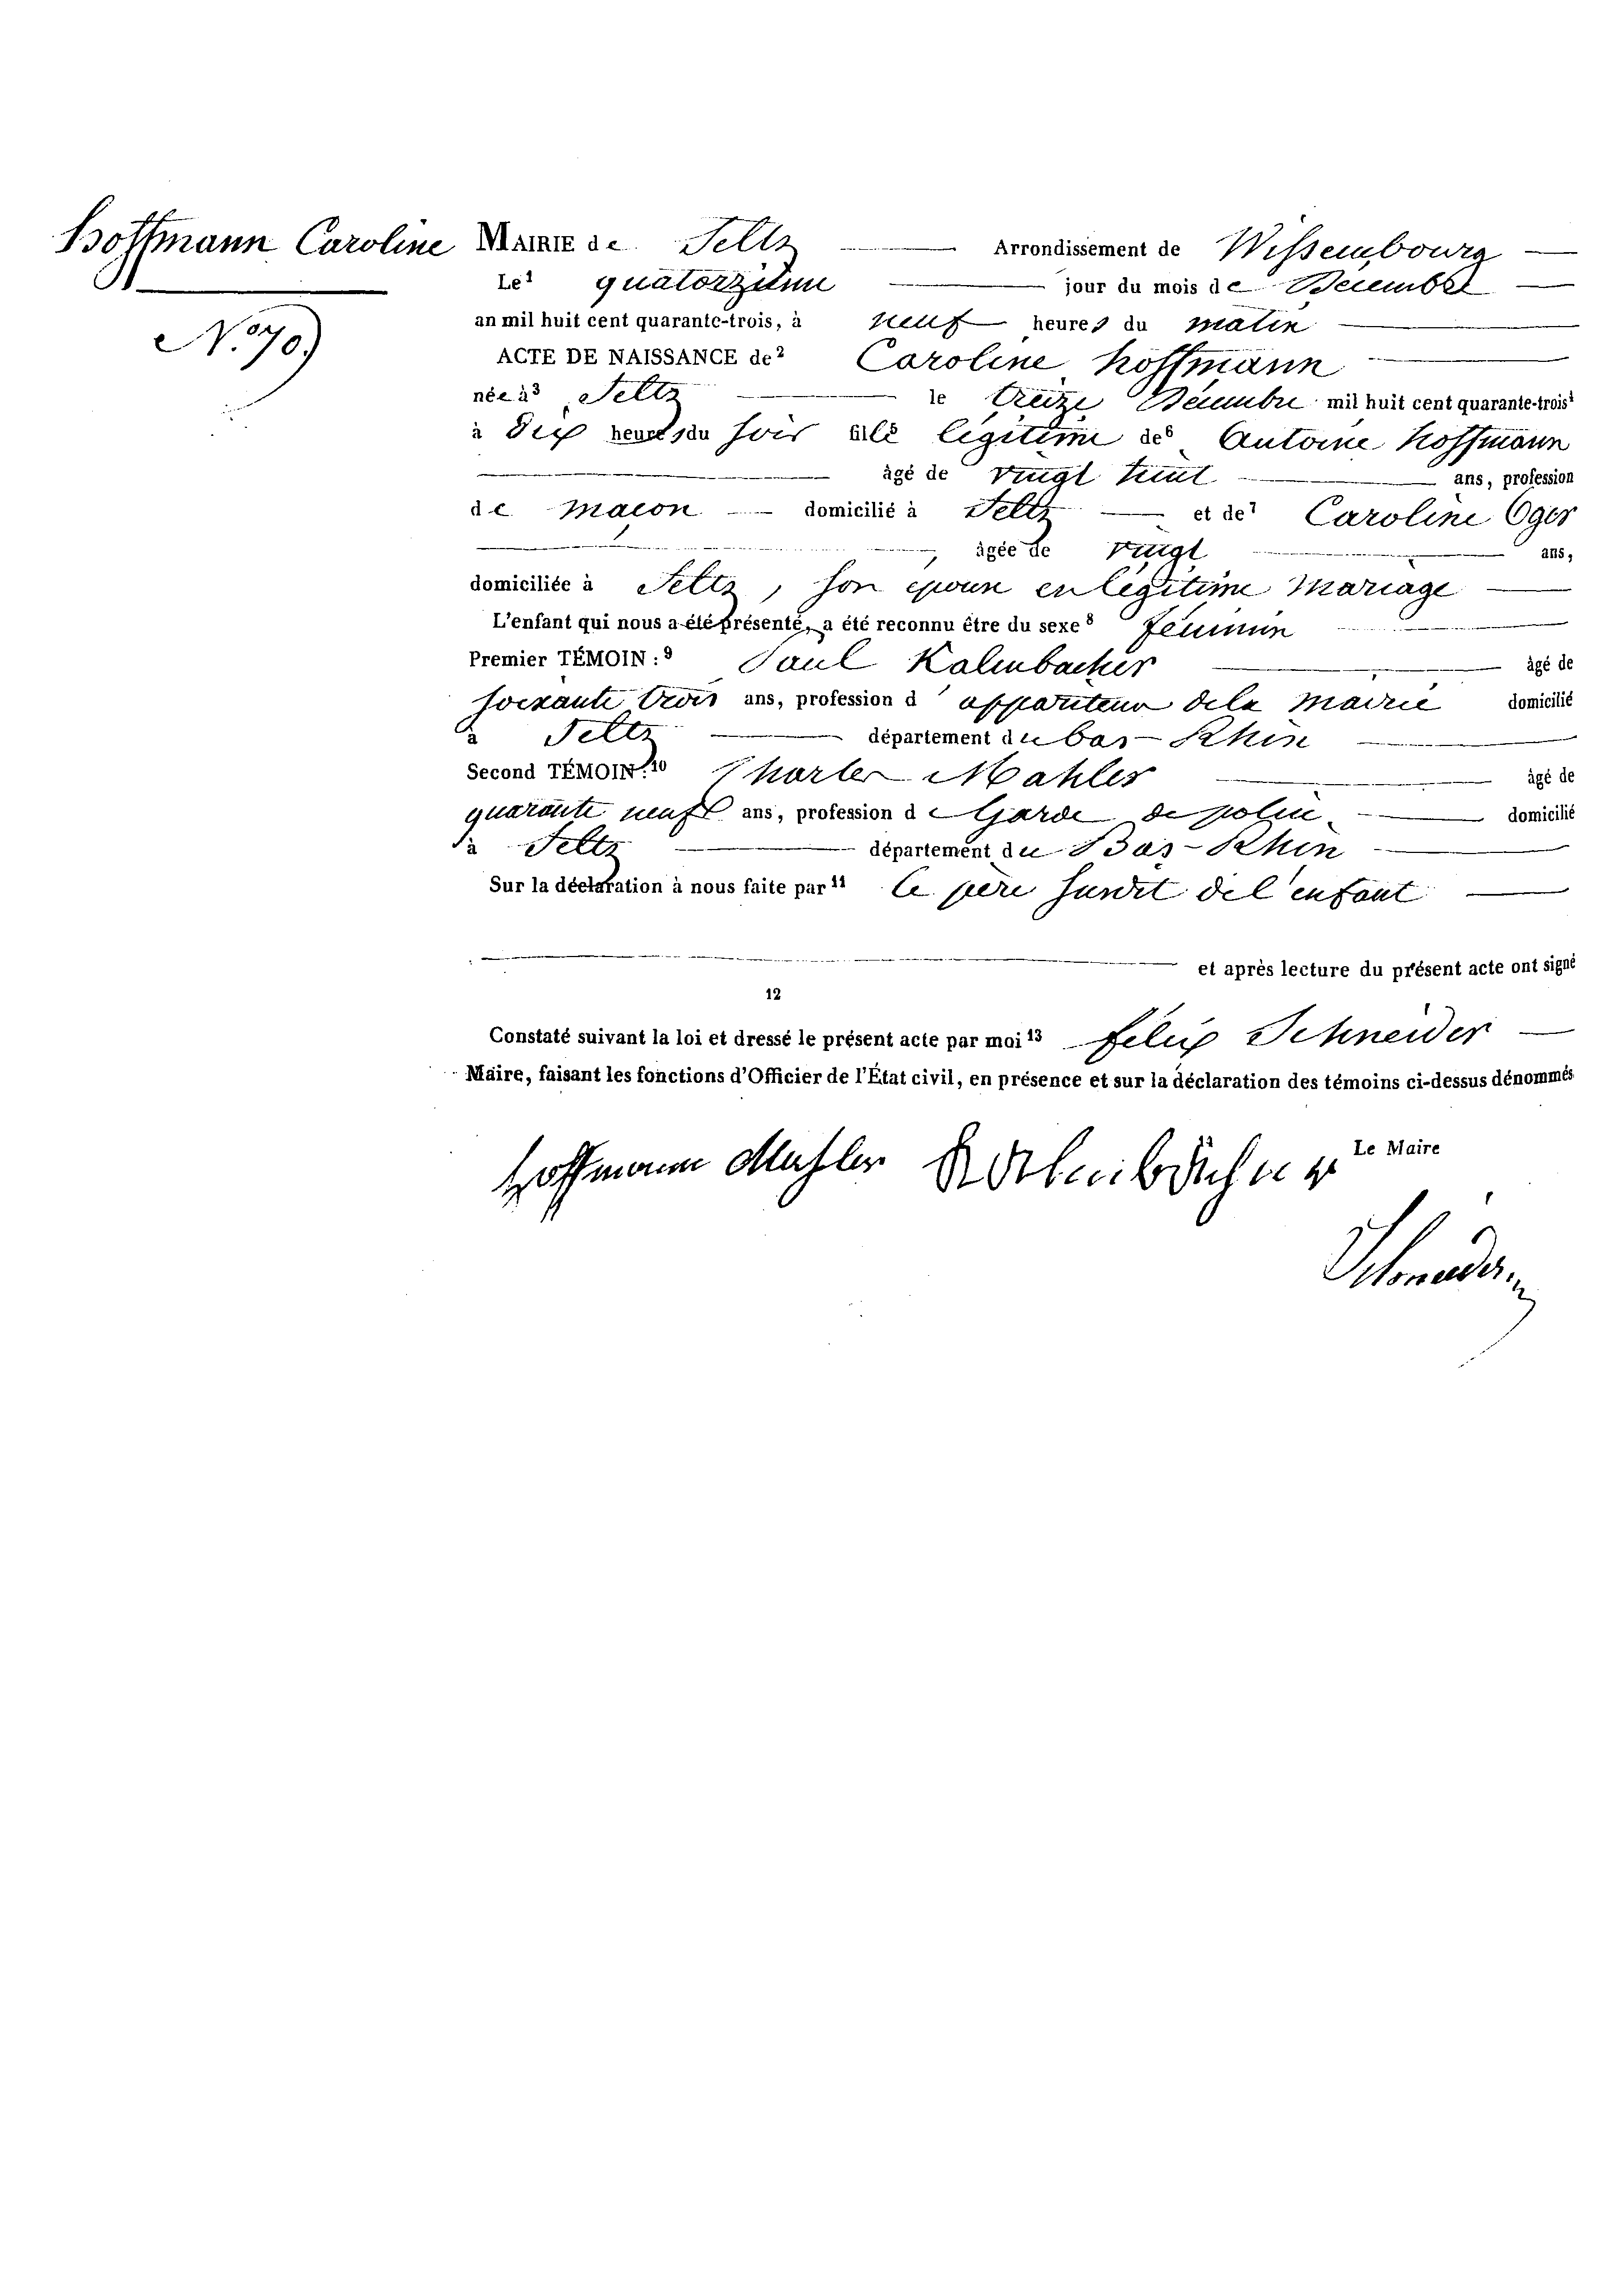 Hoffmann Caroline
N.° 70)
MAIRIE de Seltz Arrondissement de Wissembourg
Le¹ quatorzième jour du mois de Décembre
an mil huit cent quarante-trois, à neuf heures du matin
ACTE DE NAISSANCE de² Caroline hoffmann
née à³ Seltz le treize Décembre mil huit cent quarante-trois
à dix heures du soir fille légitime de⁶ Antoine hoffmann
âgé de vingt huit ans, profession
de maçon domicilié à Seltz et de⁷ Caroline Oger
âgée de vingt ans,
domiciliée à Seltz, son épouse en légitime mariage
L'enfant qui nous a été présenté, a été reconnu être du sexe⁸ féminin
Premier TÉMOIN :⁹ Paul Kalmbacher âgé de
soixante trois ans, profession d'appariteur de la mairie domicilié
à Seltz département du bas-Rhin
Second TÉMOIN :¹⁰ Charles Mahler âgé de
quarante neuf ans, profession de Garde de police domicilié
à Seltz département du Bas-Rhin
Sur la déclaration à nous faite par¹¹ le père susdit de l'enfant
et après lecture du présent acte ont signé
12
Constaté suivant la loi et dressé le présent acte par moi¹³ félix Schneider
Maire, faisant les fonctions d'Officier de l'État civil, en présence et sur la déclaration des témoins ci-dessus dénommés
Le Maire
Hoffmann Mahler Kalmbacher
Schneider